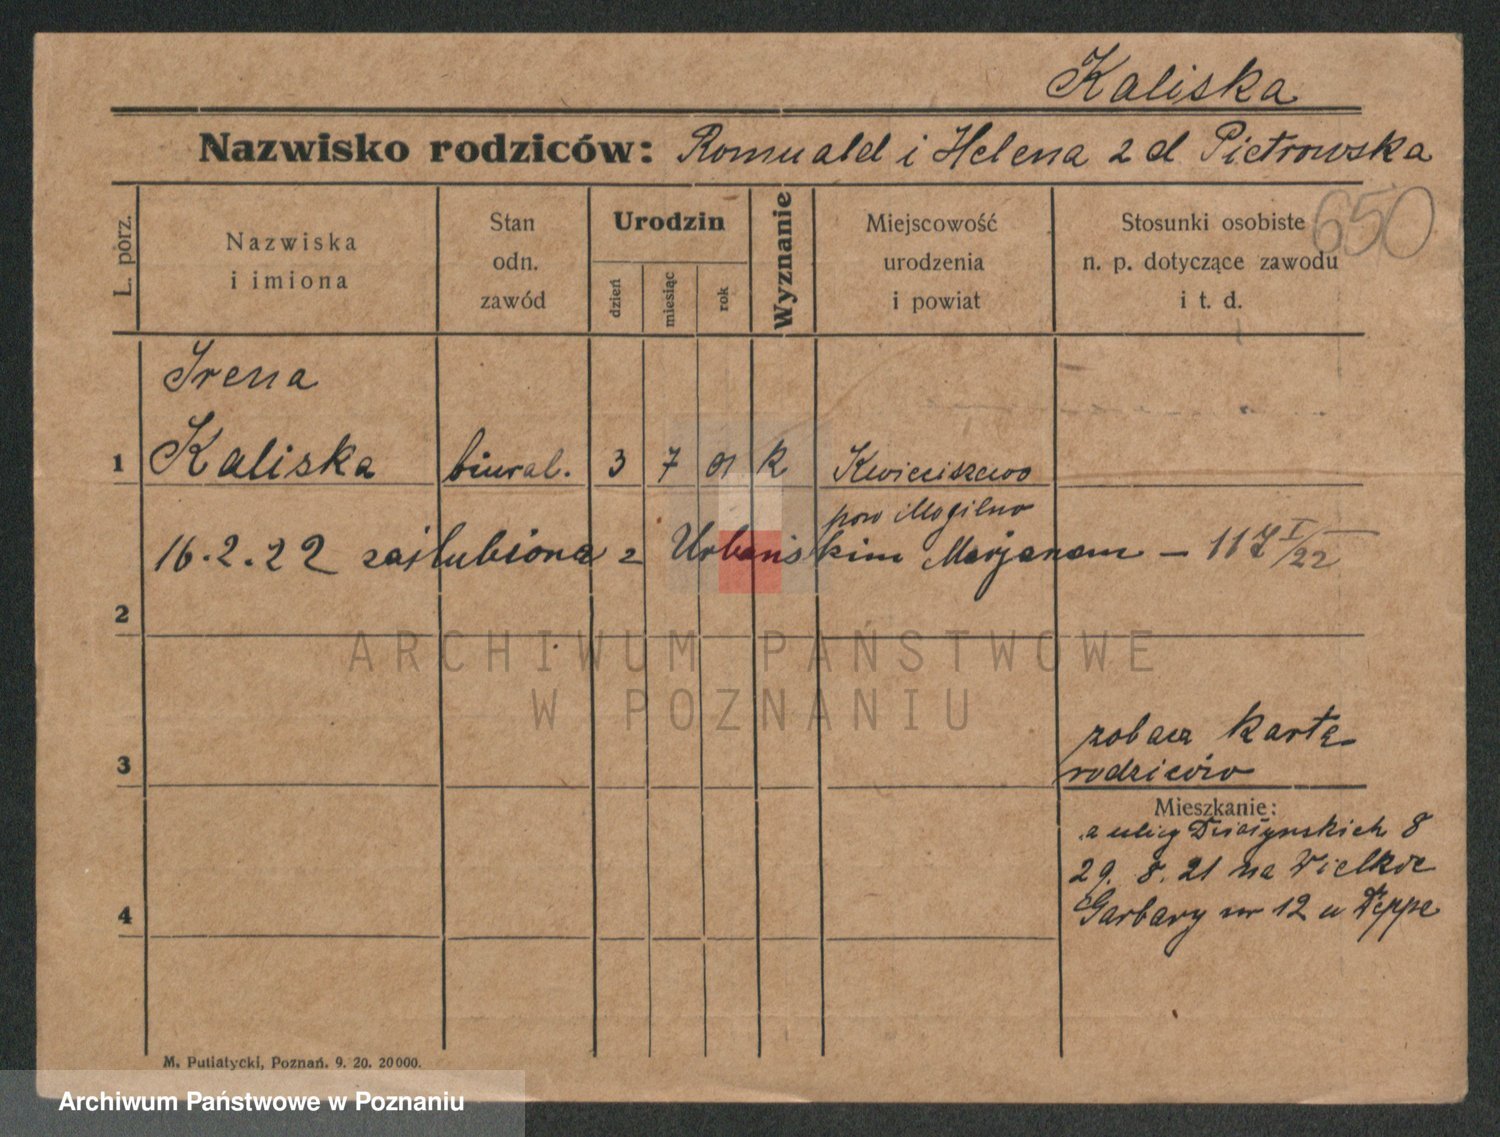 Kaliska
Nazwisko rodziców: Romuald i Helena z d Pietrowska
650
L. porz.
Nazwiska
i imiona
Stan
odn.
zawód
Urodzin
dzień
miesiąc
rok
Wyznanie
Miejscowość
urodzenia
i powiat
Stosunki osobiste
n. p. dotyczące zawodu
i t. d.
Irena
1 Kaliska biural. 3 7 01 k Kwieciszewo
pow Mogilno
16.2.22 zaślubiona z Urbańskim Marjanem – 117 I/22
2
ARCHIWUM PAŃSTWOWE
W POZNANIU
zobacz kartę
3 rodziców
Mieszkanie:
z ulicy Działyńskich 8
29. 8. 21 na Wielkie
4 Garbary nr 12 u Deppe
M. Putiatycki, Poznań. 9. 20. 20000.
Archiwum Państwowe w Poznaniu